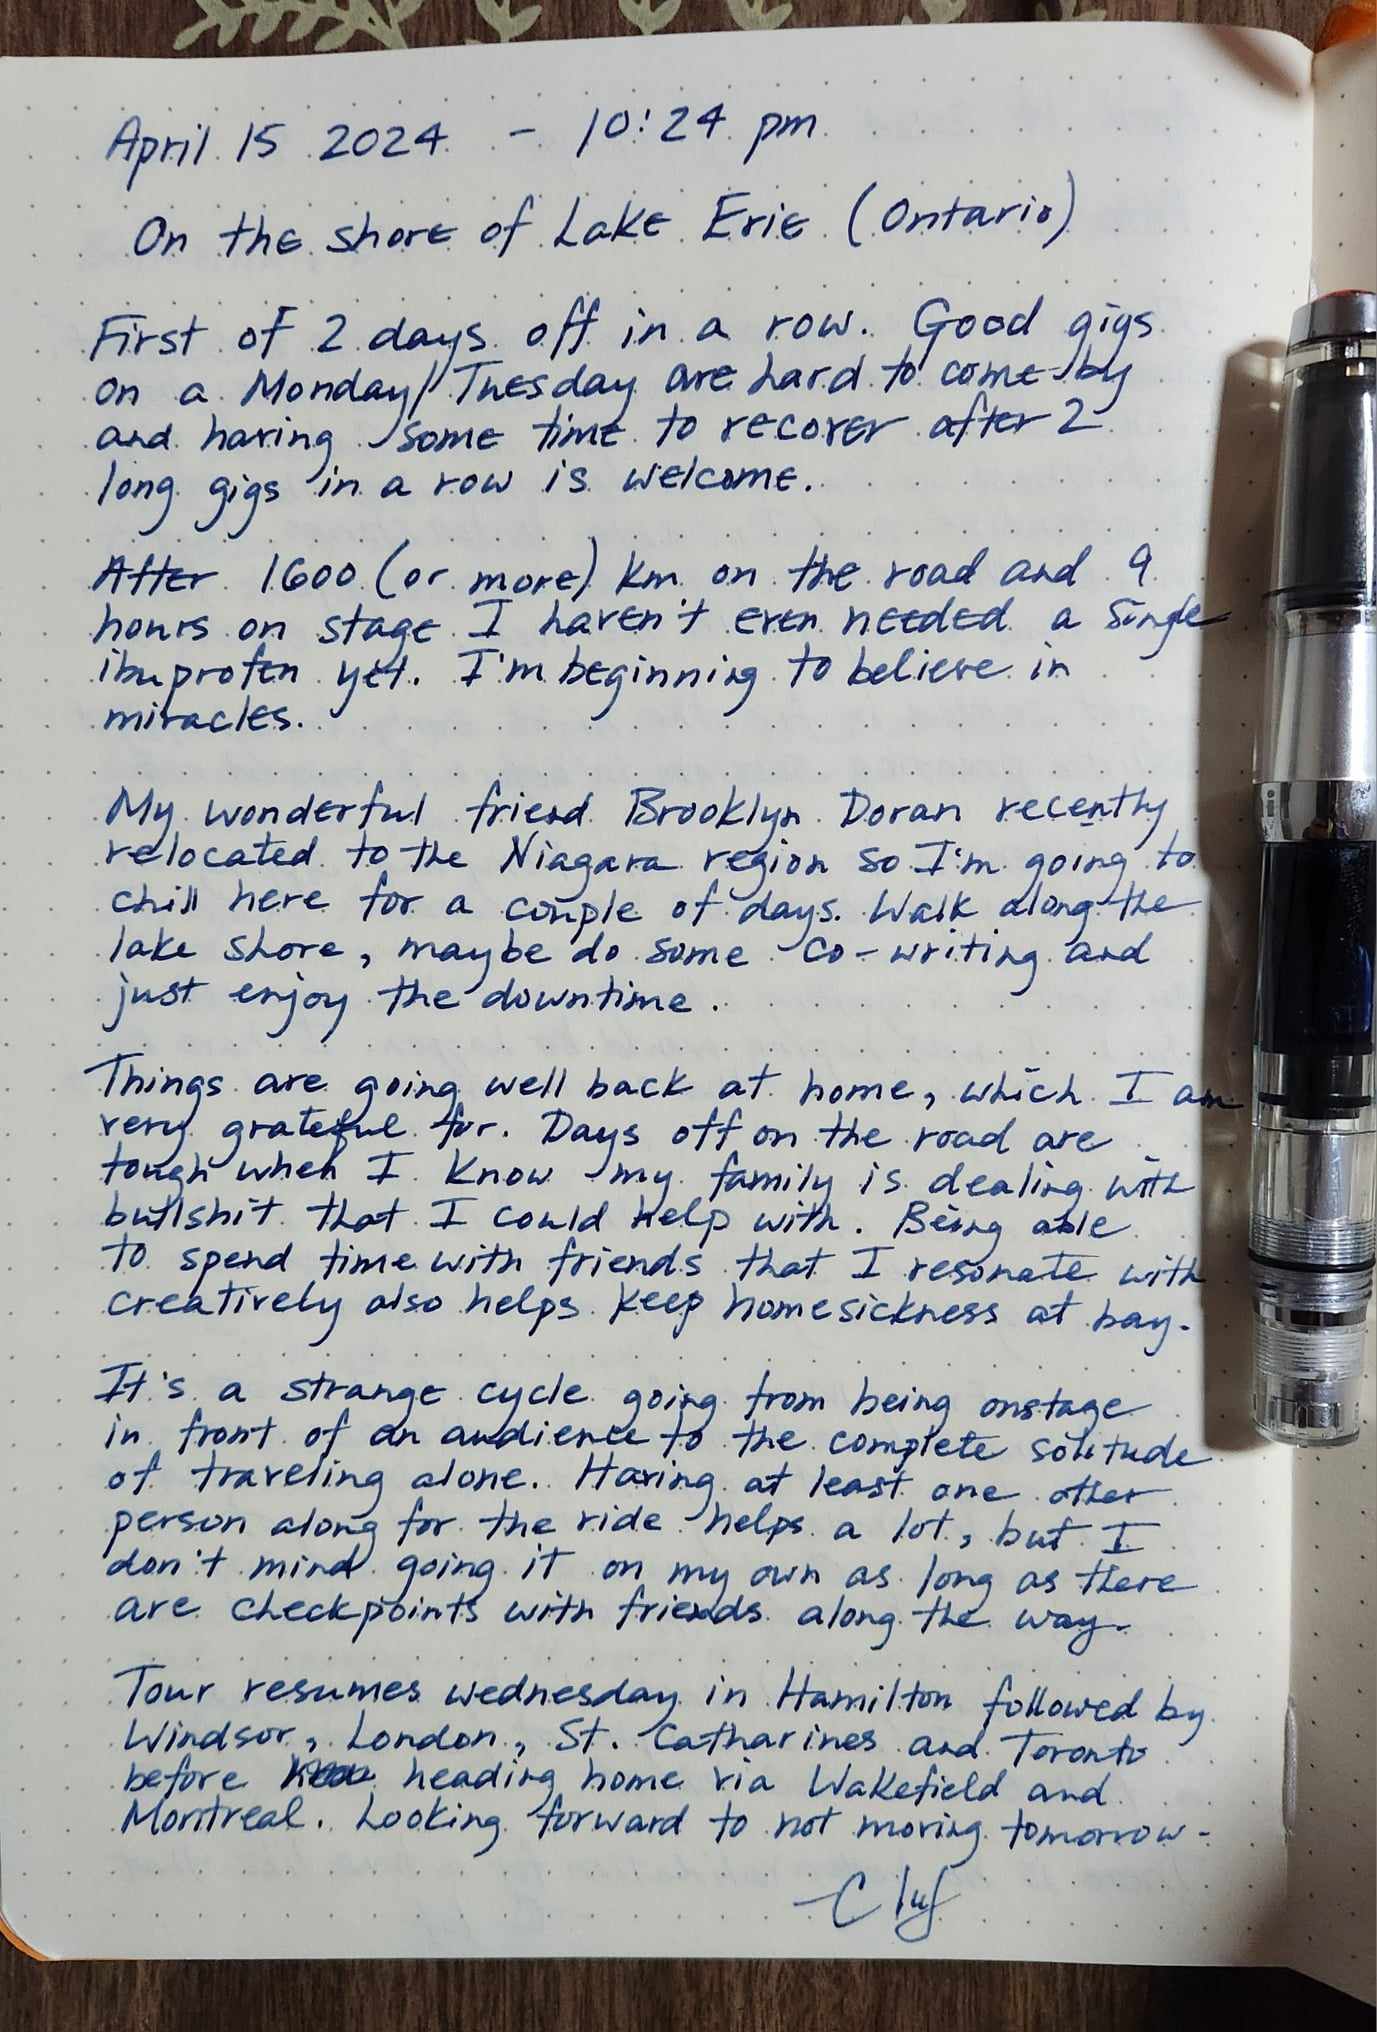 April 15 2024 - 10:24 pm
On the shore of Lake Erie (Ontario)
First of 2 days off in a row. Good gigs
on a Monday/Tuesday are hard to come by
and having some time to recover after 2
long gigs in a row is welcome.
After 1600 (or more) km on the road and 9
hours on stage I haven't even needed a single
ibuprofen yet. I'm beginning to believe in
miracles.
My wonderful friend Brooklyn Doran recently
relocated to the Niagara region so I'm going to
chill here for a couple of days. Walk along the
lake shore, maybe do some co-writing and
just enjoy the downtime.
Things are going well back at home, which I am
very grateful for. Days off on the road are
tough when I know my family is dealing with
bullshit that I could help with. Being able
to spend time with friends that I resonate with
creatively also helps keep homesickness at bay.
It's a strange cycle going from being onstage
in front of an audience to the complete solitude
of traveling alone. Having at least one other
person along for the ride helps a lot, but I
don't mind going it on my own as long as there
are checkpoints with friends along the way.
Tour resumes wednesday in Hamilton followed by
Windsor, London, St. Catharines and Toronto
before heading home via Wakefield and
Montreal. Looking forward to not moving tomorrow-